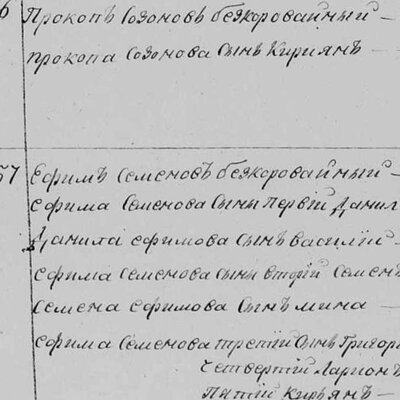 6 Прокопъ Созоновъ безкоровайный –
прокопа Созонова Сынъ Кириянъ –
57 Ефимъ Семеновъ безкоровайный –
ефима Семенова Сыны первій Данил
Данила ефимова Сынъ василій –
ефима Семенова Сынъ вторій Семенъ
Семена ефимова Сынъ мина –
ефима Семенова третій Сынъ Григорі
Четвертій Ларионъ
Пятій Кирьянъ –